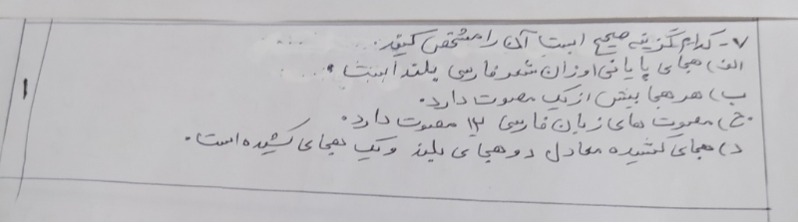 ۷- کدام گزینه صحیح است آن را مشخص کنید:
الف) هجای پایانی اوزان شعر فارسی بلند است.
ب) هر هجا بیش از یک مصوت دارد.
ج) مصوت های زبان فارسی ۱۲ مصوت دارد.
د) هجای کشیده معادل دو هجای بلند و یک هجای کشیده است.
۱